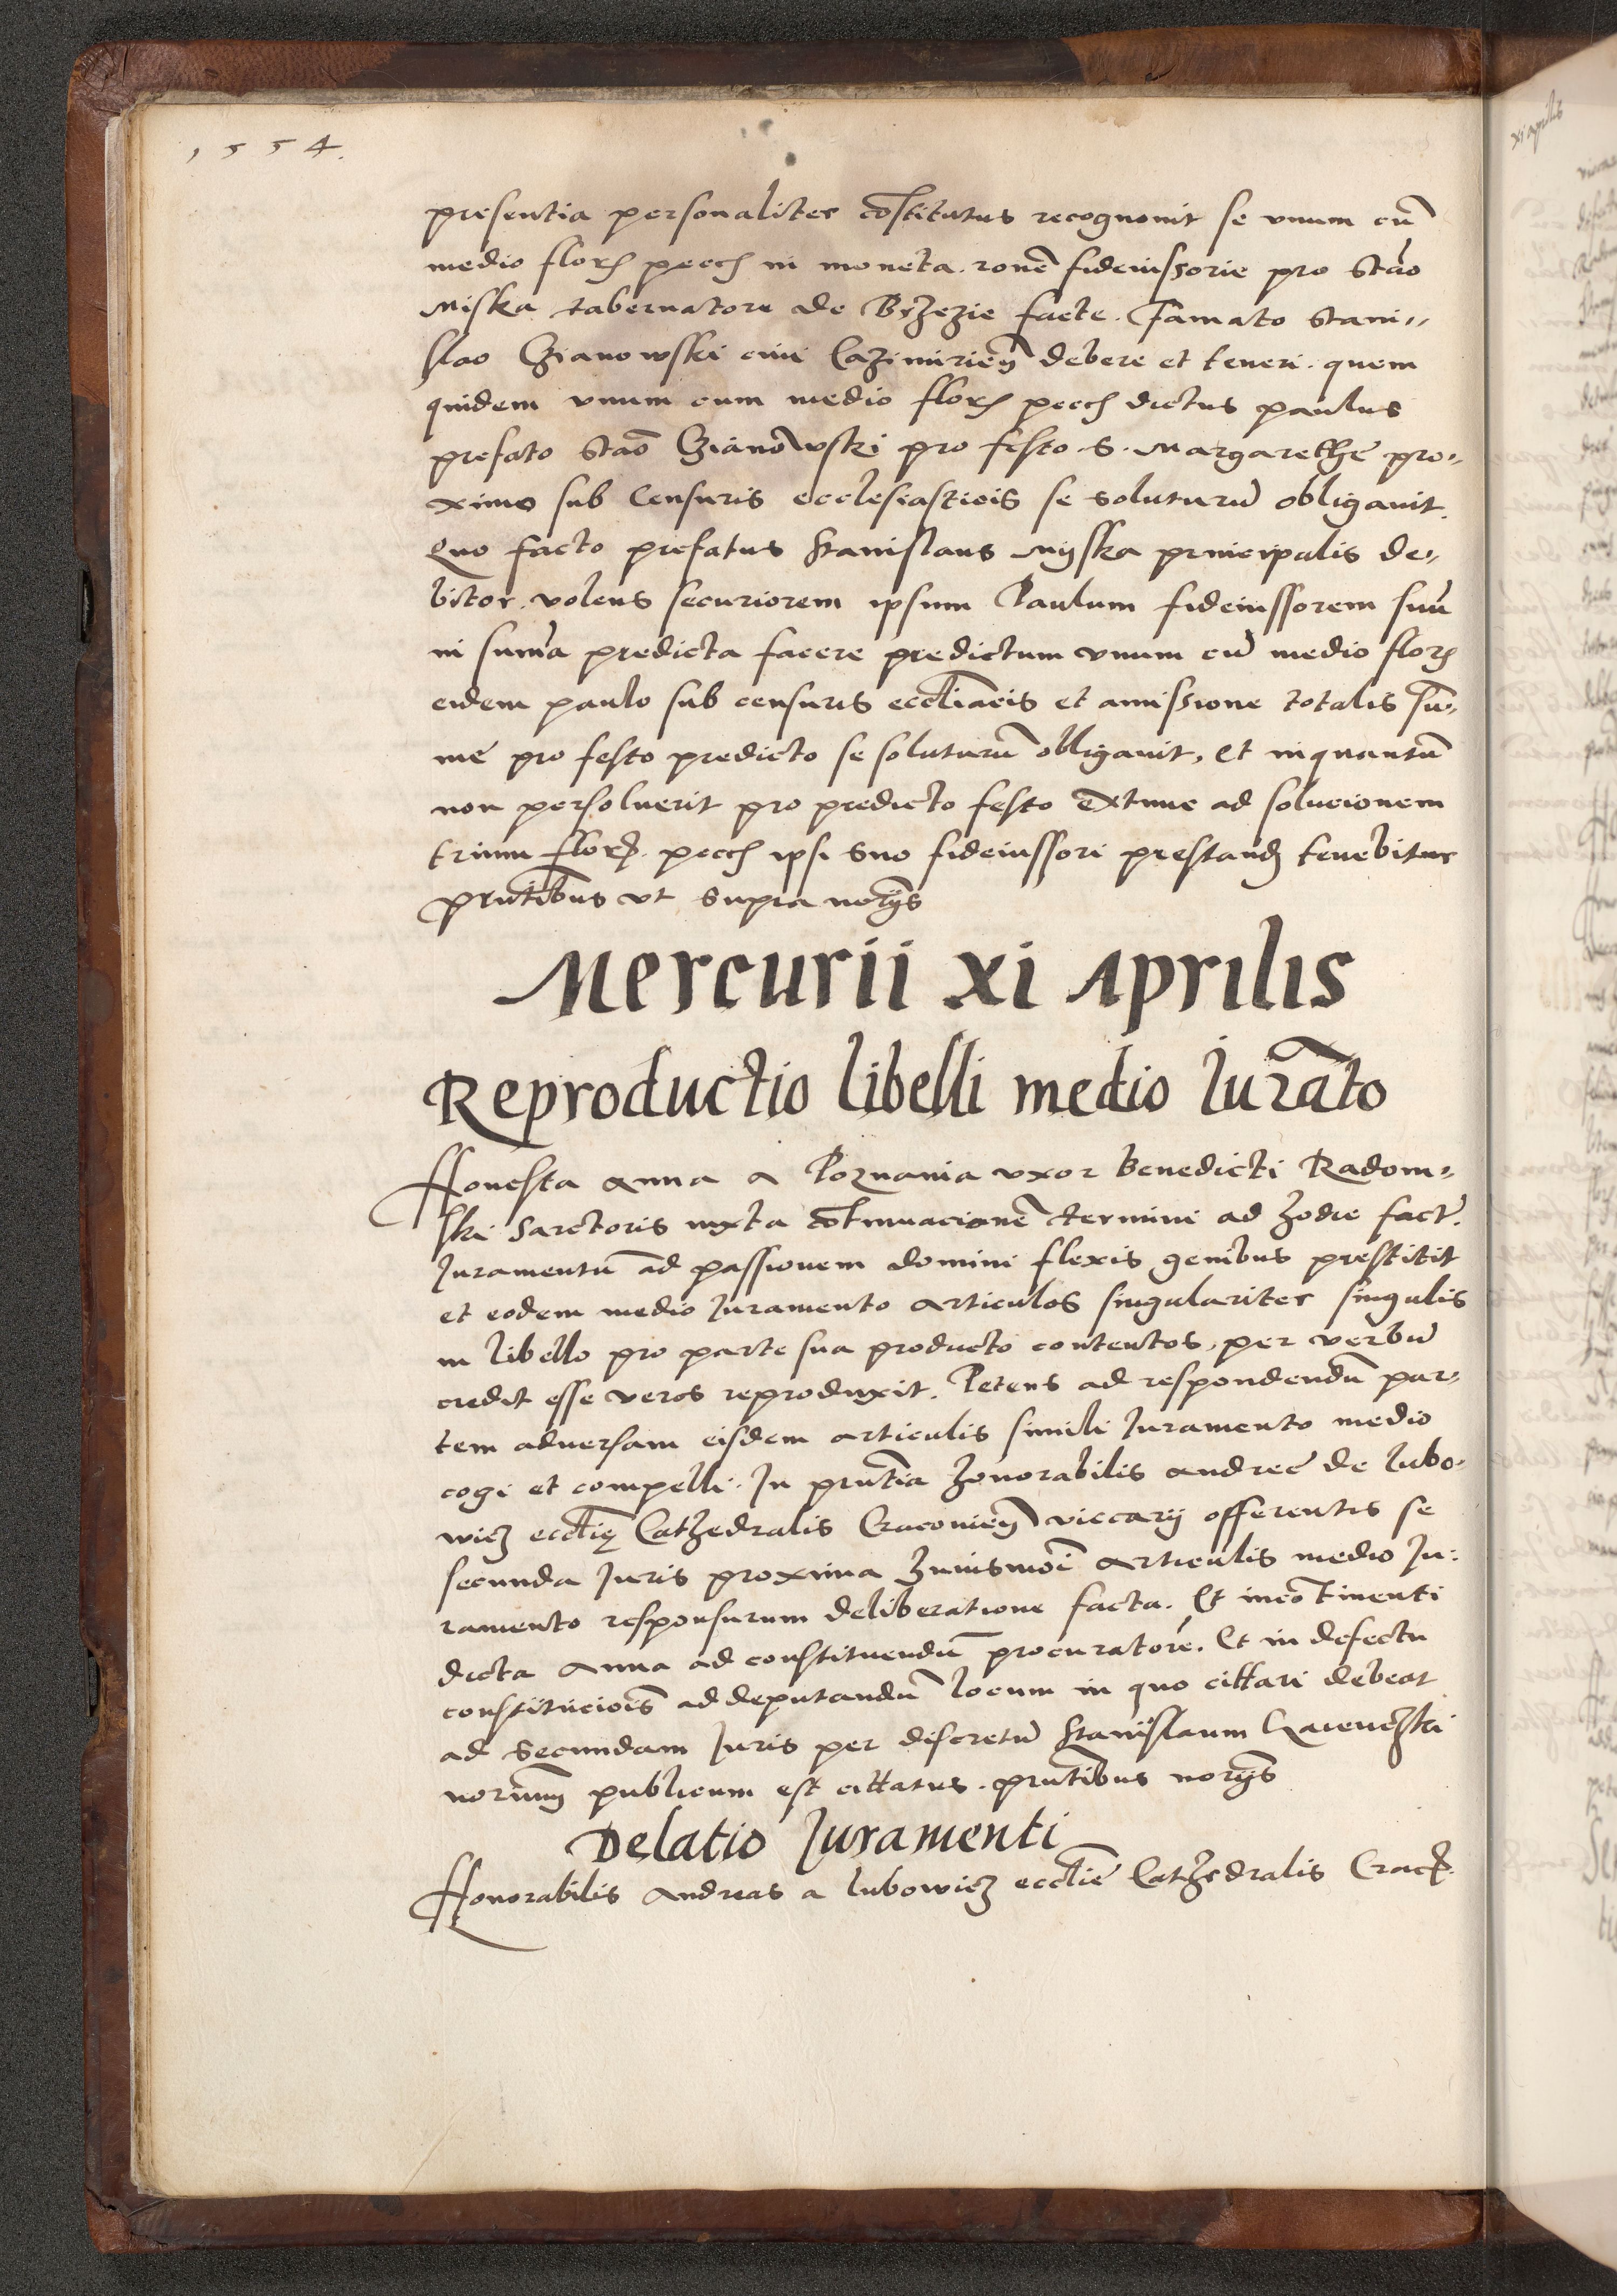 1554.
presentia personaliter cōstitutus recognovit se vnum cū
medio floren pecch in moneta. ronē fideiussorie pro Stāo
Miska tabernatore de Brzezie facte. Famato Stani„
slao Gzianowski civi Cazimirien debere et teneri. quem
quidem vnum cum medio floren pecch dictus paulus
prefato Stāo Gzianowski pro festo. S. Margarethe pro„
ximo sub Censuris ecclesiasticis se soluturū obligavit.
Quo facto prefatus Stanislaus Myska principalis de„
bitor. volens securiorem ipsum Paulum fideiussorem suū
in sum̄a predicta facere predictum vnum cū medio floren
eidem paulo sub censuris eccliācis et amissione totalis sū„
me pro festo predicto se soluturū obligavit, Et inquantū
non persoluerit pro predicto festo extunc ad solucionem
trium floren. pecch ipsi suo fideiussori prestand tenebitur
prntībus vt supra norijs
Mercurii xi Aprilis
Reproductio libelli medio Iurāto
Honesta Anna a Poznania vxor Benedicti Radom„
ski Sarctoris iuxta cōtinuacionē termini ad hodie fact.
Iuramentū ad passionem domini flexis genibus prestitit
et eodem medio Iuramento articulos singulariter singulis
in libello pro parte sua producto contentos, per verbū
credit esse veros reproduxit. Petens ad respondendū par„
tem adversam eisdem articulis simili Iuramento medio
cogi et compelli. In prntīa honorabilis Andree de Lubo„
wicz eccliē Cathedralis Cracovien viccarij offerentis se
secunda Iuris proxima huiusmōi articulis medio Iu„
ramento responsurum deliberatione facta. Et incōtinenti
dicta Anna ad constituendū procuratorē. Et in defectu
constituciōis ad deputandū locum in quo cittari debeat
ad Secundam Iuris per discretū Stanislaum
norium publicum est cittatus. prntībus norijs
Delatio Iuramenti
Honorabilis Andreas a Lubowicz eccliē Cathedralis Crac.
xi aprilis